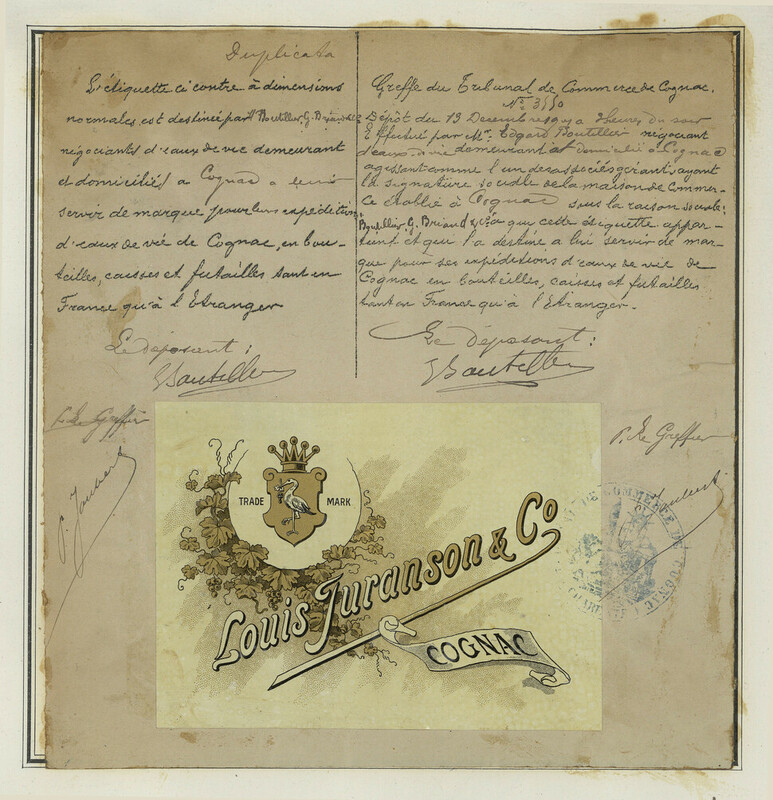 Duplicata
L'étiquette ci contre à dimensions
normales est destinée par Mr Boutillier G. Briand & Cie
négociants d'eaux de vie demeurant
et domiciliés à Cognac a leur
servir de marque pour leurs expéditions
d'eaux de vie de Cognac, en bou-
teilles, caisses et futailles tant en
France qu'à l'Etranger
Le déposant :
EBoutillier
P. Le Greffier
P. Jaubert
Greffe du Tribunal de Commerce de Cognac.
No 3550
Dépôt du 13 Decembre à 3 heures du soir
Effectué par Mr. Edgard Boutillier négociant
d'eaux de vie demeurant et domicilié à Cognac
agissant comme l'un des associés gérants ayant
la signature sociale de la maison de Commer-
ce établie à Cognac sous la raison sociale:
Boutillier G. Briand & Cie a qui cette étiquette appar-
tient et qui l'a destinée a lui servir de mar-
que pour ses expéditions d'eaux de vie de
Cognac en bouteilles, caisses et futailles
tant en France qu'à l'Etranger.
Le déposant :
EBoutillier
P. Le Greffier
Jaubert
TRADE MARK
Louis Juranson & Co
COGNAC
DE COMMERCE DE COGNAC